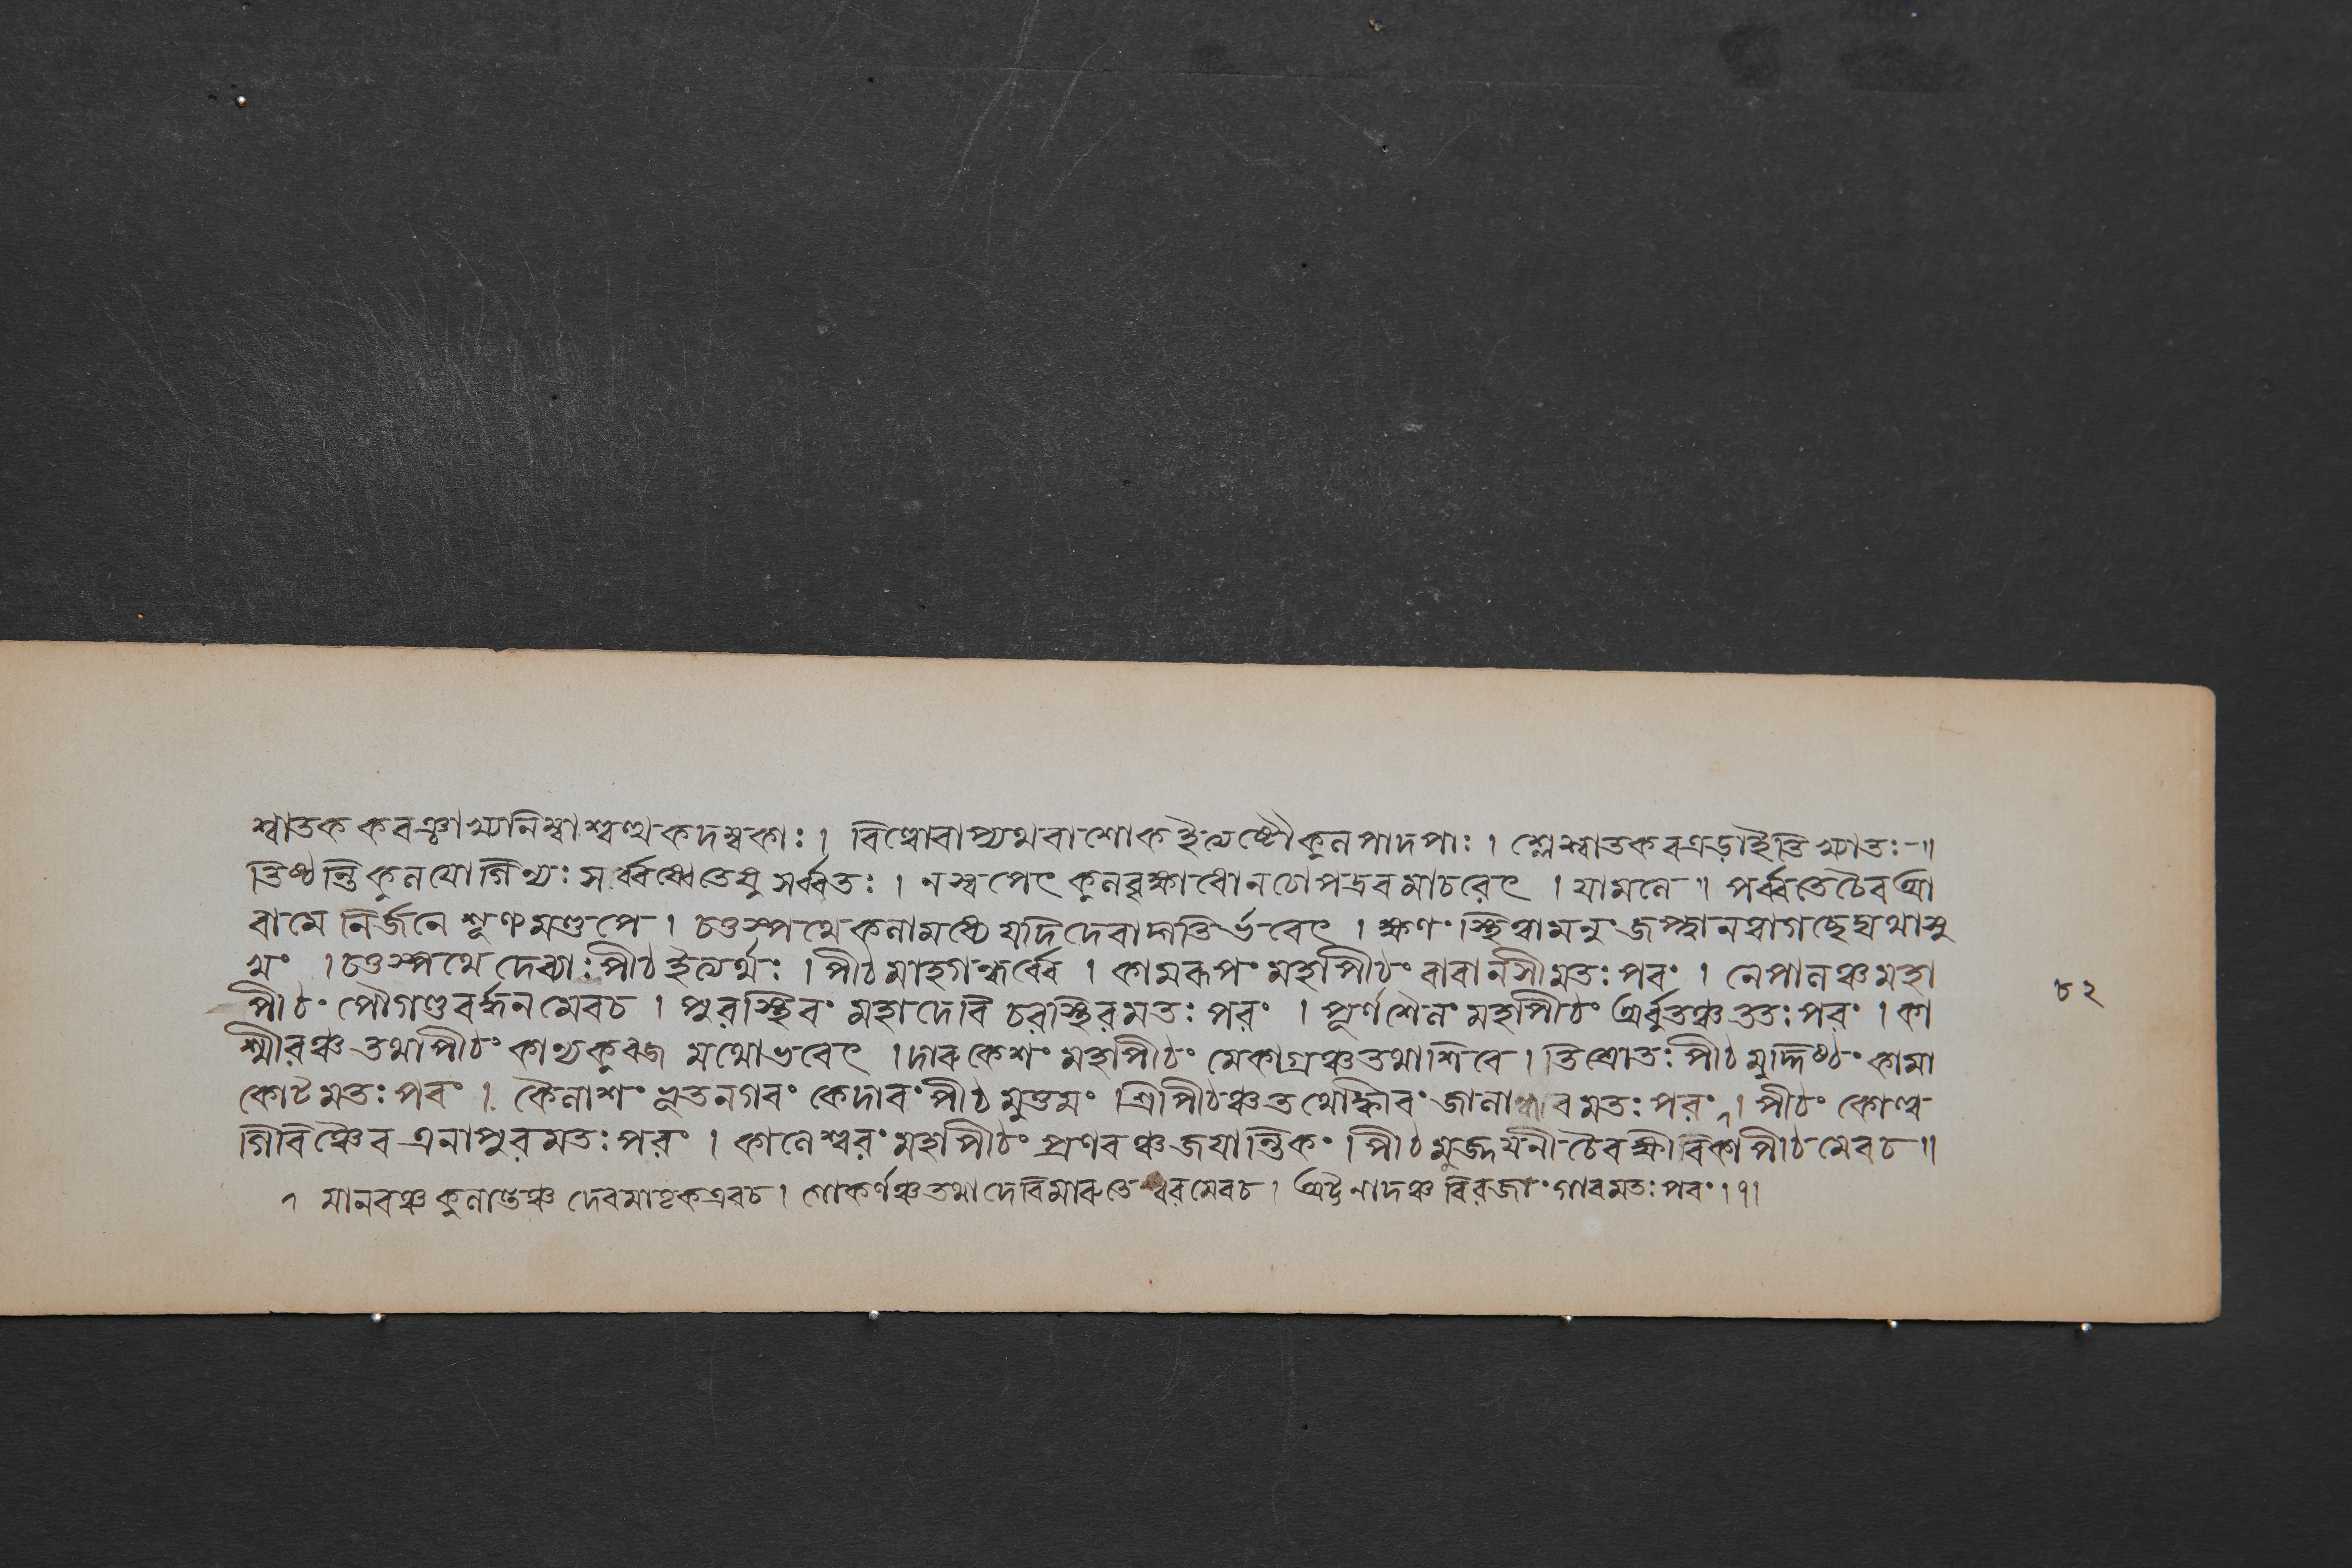 শ্বাতক করঞ্জাখ্যনিম্বাশ্বত্থকদম্বকাঃ । বিল্বোবাপ্যথবাশোক ইত্যষ্টৌকুলপাদপাঃ । শ্লেষ্মাতকবএড়াইতি খ্যাতঃ-॥
তিষ্ঠন্তি কুলযোগিন্যঃ সর্ব্বেষ্বেতেষু সর্ব্বতঃ । নস্বপেৎ কুলবৃক্ষাধোনচোপদ্রবমাচরেৎ । যামলে ॥ পর্ব্বতেচৈবআ
রামে নির্জনে শূণ্যমণ্ডপে । চতুস্পথেকলামধ্যে যদিদেবাদ্গতির্ভবেৎ । ক্ষণং স্থিত্বামনুং জপ্ত্বানত্বাগছেদ্যথাসু
খং । চতুস্পথে দেব্যাঃপীঠইত্যর্থঃ । পীঠমাহগন্ধর্ব্বে । কামরূপং মহাপীঠং বারানসীমতঃপরং । নেপালঞ্চমহা
পীঠং পৌগণ্ডবর্দ্ধনমেবচ । পুরস্থিরং মহাদেবি চরস্থিরমতঃ পরং । পূর্ণশৈলং মহাপীঠং অর্বুতঞ্চততঃপরং । কা
শ্মীরঞ্চ তথাপীঠং কান্যকুব্জ মথোভবেৎ । দারুকেশং মহাপীঠং মেকাগ্রঞ্চতথাশিবে । তিশ্রোতঃপীঠমুদ্দিষ্ঠং কামা
কোটমতঃপরং । কৈলাশং ভৃতনগরং কেদারংপীঠমুত্তমং । শ্রিপীঠঞ্চতথোঙ্কারং জালান্ধরমতঃপরং । পীঠং কোল্ব
গিরিঞ্চৈব এলাপুরমতঃপরং । কালেশ্বরং মহাপীঠং প্রণবঞ্চজয়ান্তিকং । পীঠমুজ্জয়নীচৈবক্ষীরিকাপীঠমেবচ ॥
৭ মালবঞ্চ কুলান্তেঞ্চ দেবমাতৃকএবচ । গোকর্ণঞ্চতথাদেবিমারুতেশ্বরমেবচ । অট্টনাদঞ্চ বিরজাং গারমতঃপরং ।৭।
৮২